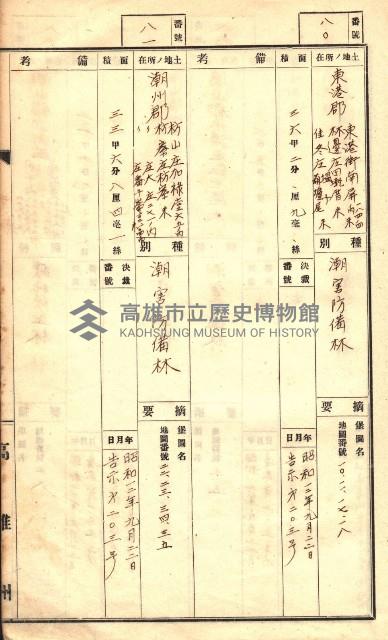 番號
八〇
土地ノ所在
東港郡
東港街南屏
林邊庄田墘厝
佳冬庄
面積
三六甲二分 厘九毫 絲
備考
種別
潮害防備林
決裁番號
摘要
堡圖名
地圖番號
一〇、一一、一七、一八
年月日
昭和一二年九月二二日
告示第二〇三号
番號
八一
土地ノ所在
潮州郡
枋山庄加祿堂
枋寮庄枋寮
面積
三三甲六分八厘四毫一絲
備考
種別
潮害防備林
決裁番號
摘要
堡圖名
地圖番號
二二、二三、三四、三五
年月日
昭和一二年九月二二日
告示第二〇三号
高雄州
高雄市立歷史博物館
KAOHSIUNG MUSEUM OF HISTORY